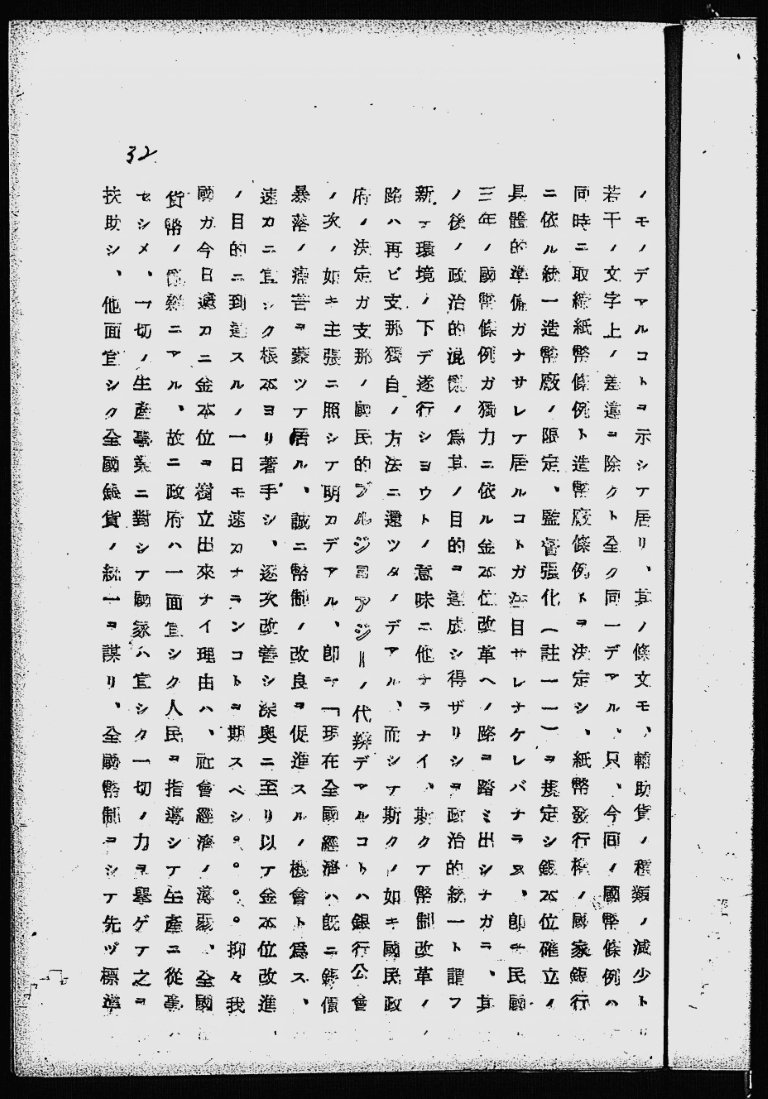 32
ノモノデアルコトヲ示シテ居リ、其ノ條文モ、輔助貨ノ種類ノ減少ト
若干ノ文字上ノ差違ヲ除クト全ク同一デアル、只、今囘ノ國幣條例ハ
同時ニ取締紙幣條例ト造幣廠條例トヲ決定シ、紙幣發行權ノ國家銀行
ニ依ル統一造幣廠ノ限定、監督強化(註一一)ヲ規定シ銀本位確立ノ
具體的準備ガナサレテ居ルコトガ注目サレナケレバナラヌ、卽チ民國
三年ノ國幣條例ガ獨力ニ依ル金本位改革ヘノ路ヲ踏ミ出シナガラ、其
ノ後ノ政治的混亂ノ爲其ノ目的ヲ達成シ得ザリシヲ政治的統一ト謂フ
新シイ環境ノ下デ遂行シヨウトノ意味ニ他ナラナイ、斯クテ幣制改革ノ
路ハ再ビ支那獨自ノ方法ニ還ツタノデアル、而シテ斯クノ如キ國民政
府ノ決定ガ支那ノ國民的ブルジヨアジーノ代辨デアルコトハ銀行公會
ノ次ノ如キ主張ニ照シテ明カデアル、卽チ「現在全國經濟ハ旣ニ銀價
暴落ノ痛苦ヲ蒙ツテ居ル、誠ニ幣制ノ改良ヲ促進スルノ機會ト爲ス、
速カニ宜シク根本ヨリ著手シ、逐次改善シ深奧ニ至リ以テ金本位改進
ノ目的ニ到達スルノ一日モ速カナランコトヲ期スベシ。。。。抑々我
國ガ今日遽カニ金本位ヲ樹立出來ナイ理由ハ、社會經濟ノ凋弊、全國
貨幣ノ紊亂ニアル、故ニ政府ハ一面宜シク人民ヲ指導シテ生產ニ從事
セシメ、一切ノ生產事業ニ對シテ國家ハ宜シク一切ノ力ヲ擧ゲテ之ヲ
扶助シ、他面宜シク全國銀貨ノ統一ヲ謀リ、全國幣制ヲシテ先ヅ標準